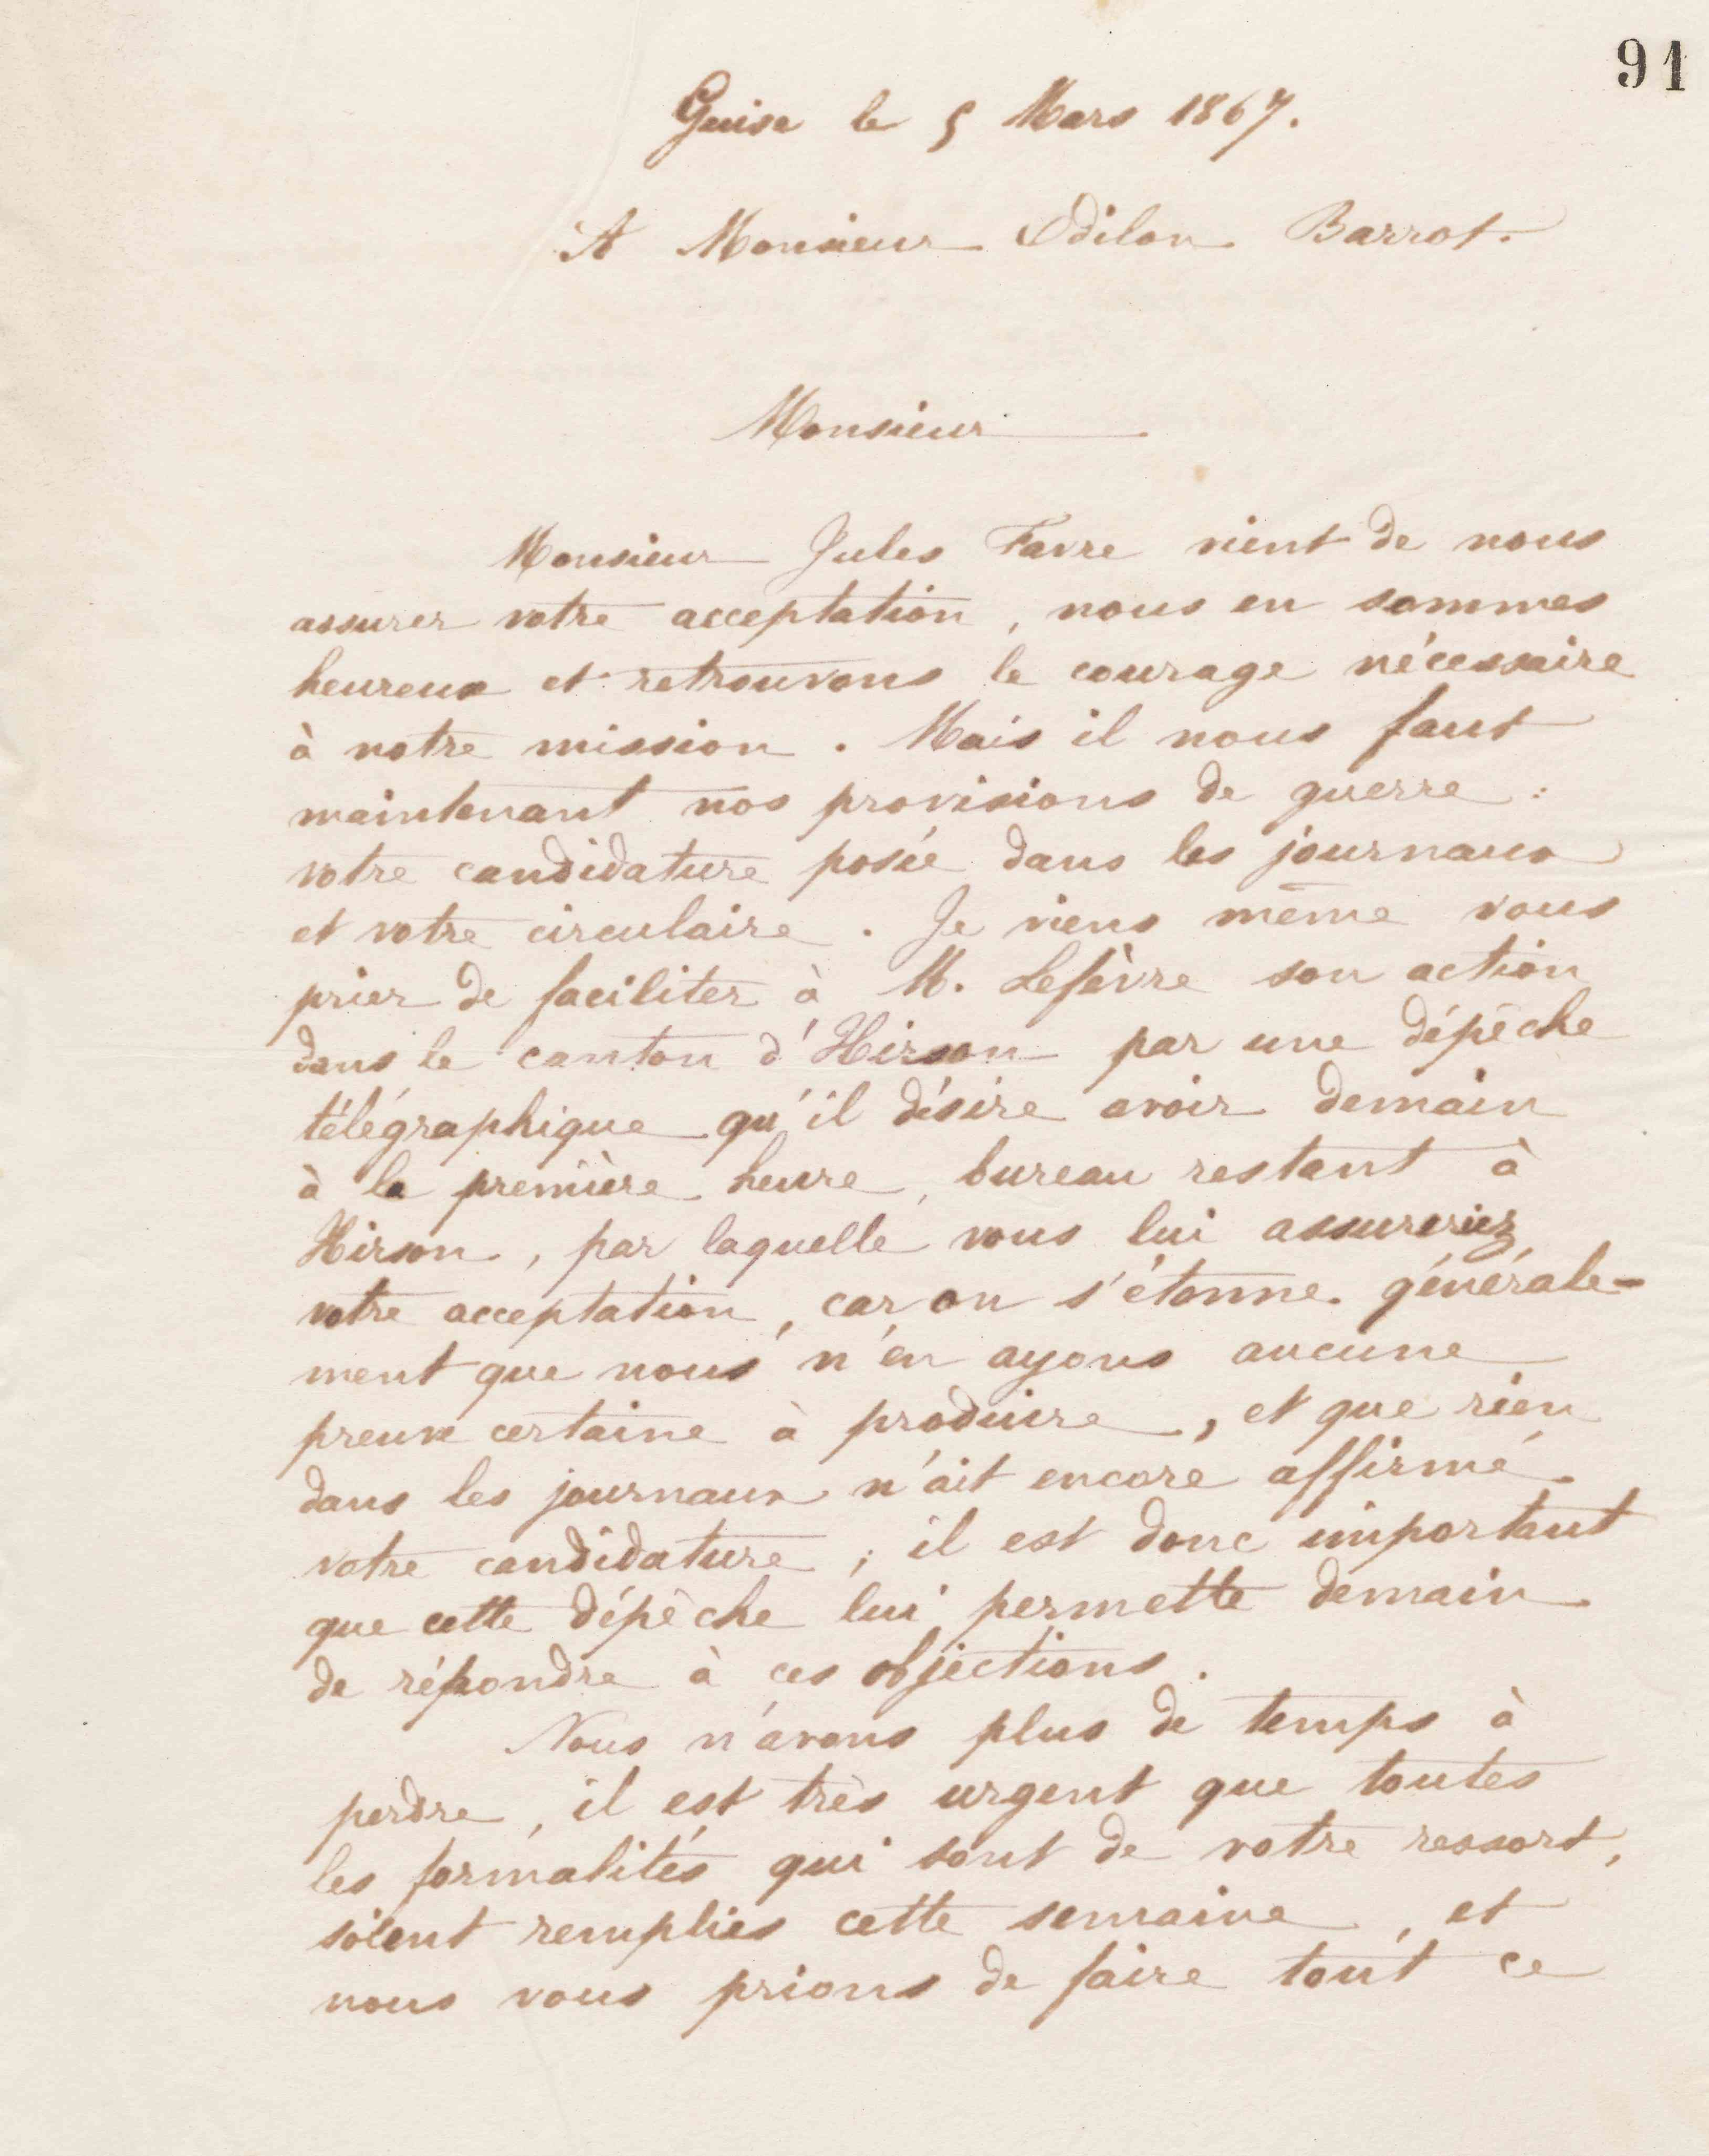 91
Guise le 5 Mars 1867.
A Monsieur Odilon Barrot.
Monsieur
Monsieur Jules Favre vient de nous
assurer votre acceptation, nous en sommes
heureux et retrouvons le courage nécessaire
à notre mission. Mais il nous faut
maintenant nos provisions de guerre :
votre candidature posée dans les journaux
et votre circulaire. Je viens même vous
prier de faciliter à M. Lefèvre son action
dans le canton d'Hirson par une dépêche
télégraphique qu'il désire avoir demain
à la première heure, bureau restant à
Hirson, par laquelle vous lui assureriez
votre acceptation, car on s'étonne générale-
ment que nous n'en ayons aucune
preuve certaine à produire, et que rien
dans les journaux n'ait encore affirmé
votre candidature ; il est donc important
que cette dépêche lui permette demain
de répondre à ces objections.
Nous n'avons plus de temps à
perdre, il est très urgent que toutes
les formalités qui sont de votre ressort,
soient remplies cette semaine, et
nous vous prions de faire tout ce